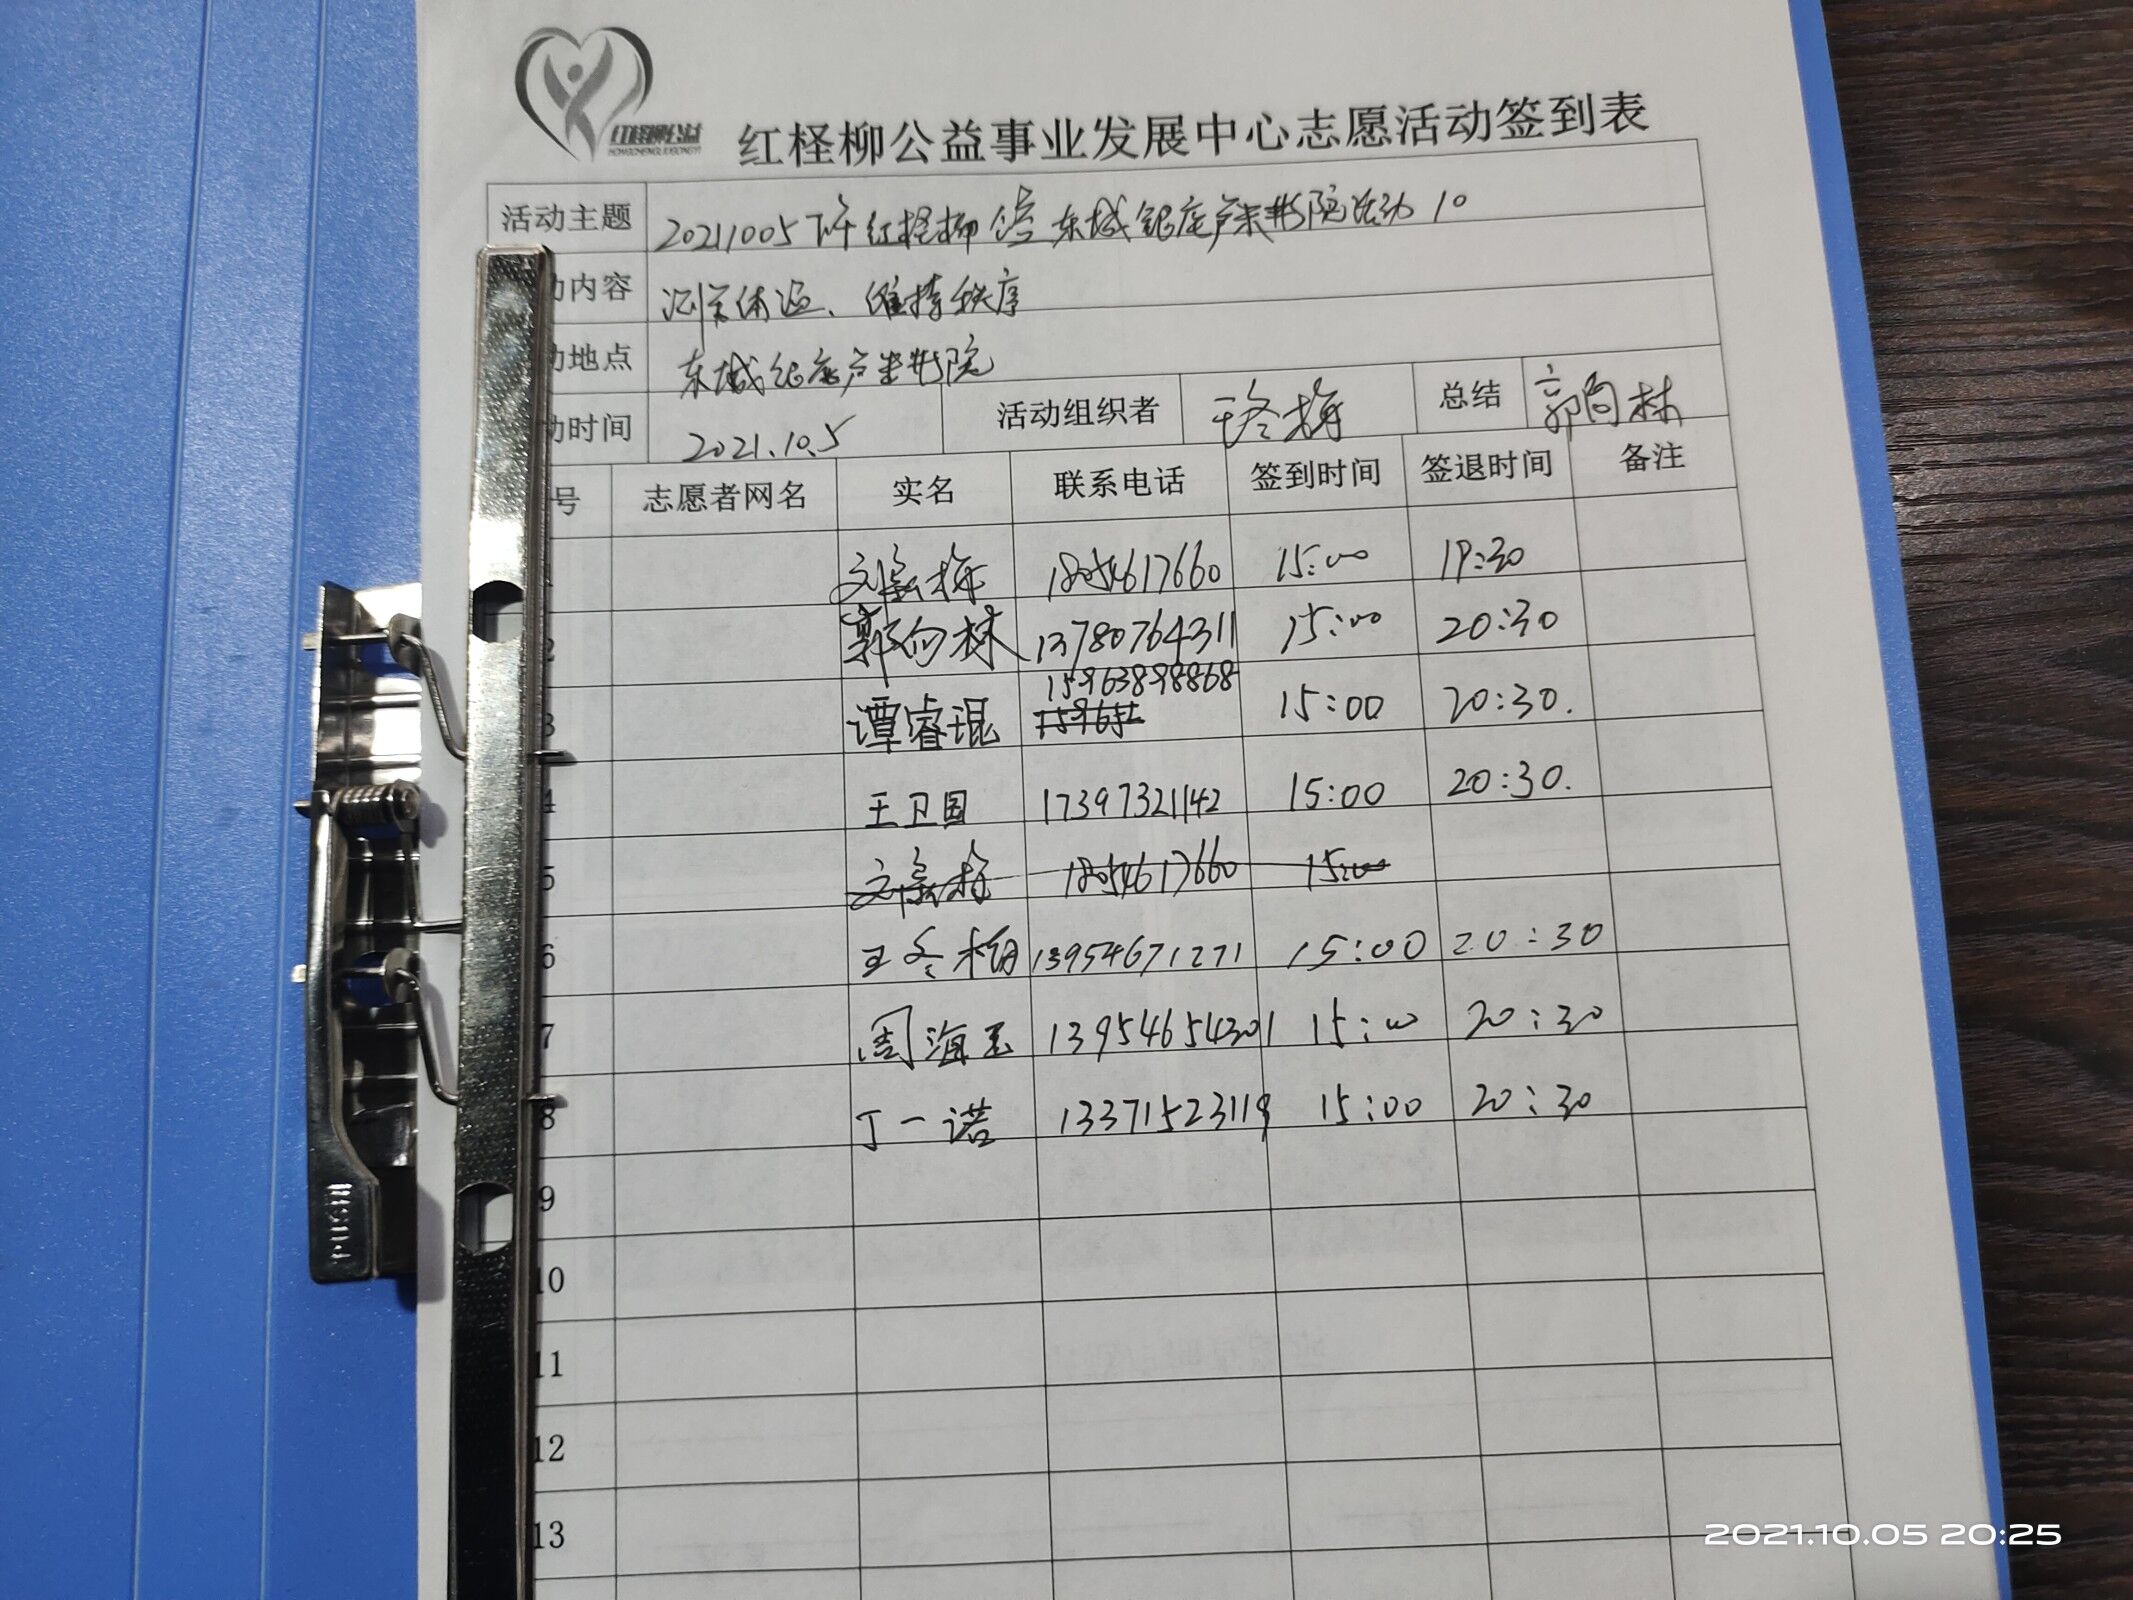 红柽柳公益
红柽柳公益事业发展中心志愿活动签到表
活动主题 20211005下午红柽柳 东城银座 书院活动10
动内容 测 体温、维持秩序
动地点 东城银座 书院
动时间 2021.10.5 活动组织者 王冬梅 总结 郭向林
号 志愿者网名 实名 联系电话 签到时间 签退时间 备注
1 18054617660 15:00 19:30
2 郭向林 13780764311 15:00 20:30
15963898868
3 谭睿琨 15:00 20:30.
4 王卫国 17397321142 15:00 20:30.
5 18054617660 15:00
6 王冬梅 13954671271 15:00 20:30
7 周海玉 13954654301 15:00 20:30
8 丁一诺 13371523119 15:00 20:30
9
10
11
12
13
PUSH
2021.10.05 20:25